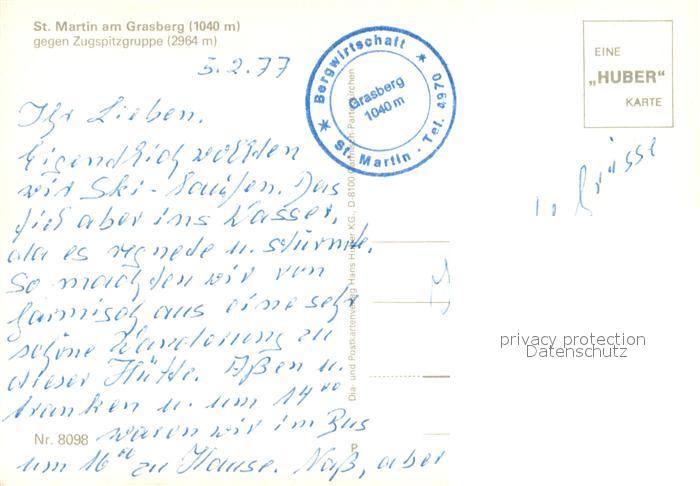 St. Martin am Grasberg (1040 m)
gegen Zugspitzgruppe (2964 m)
5.2.77
Ihr Lieben.
Eigendlich wollten
wir Ski-Laufen. Das
fiel aber ins Wasser,
da es regnete u. stürmte.
So machten wir von
Garmisch aus eine sehr
schöne Wanderung zu
dieser Hütte. Aßen u.
tranken u. um 14 00
waren wir im Bus
um 16 00 zu Hause. Naß, aber
Nr. 8098
Bergwirtschaft
St. Martin · Tel. 4970
Grasberg
1040 m
Dia- und Postkartenverlag Hans Huber KG., D-8100 Garmisch-Partenkirchen
P
EINE
„HUBER"
KARTE
Grüsse
privacy protection
Datenschutz